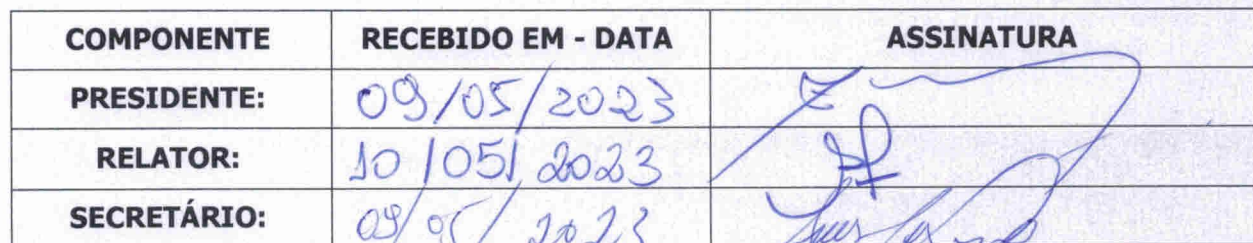 COMPONENTE RECEBIDO EM - DATA ASSINATURA
PRESIDENTE: 09/05/2023
RELATOR: 10/05/2023
SECRETÁRIO: 09/05/2023